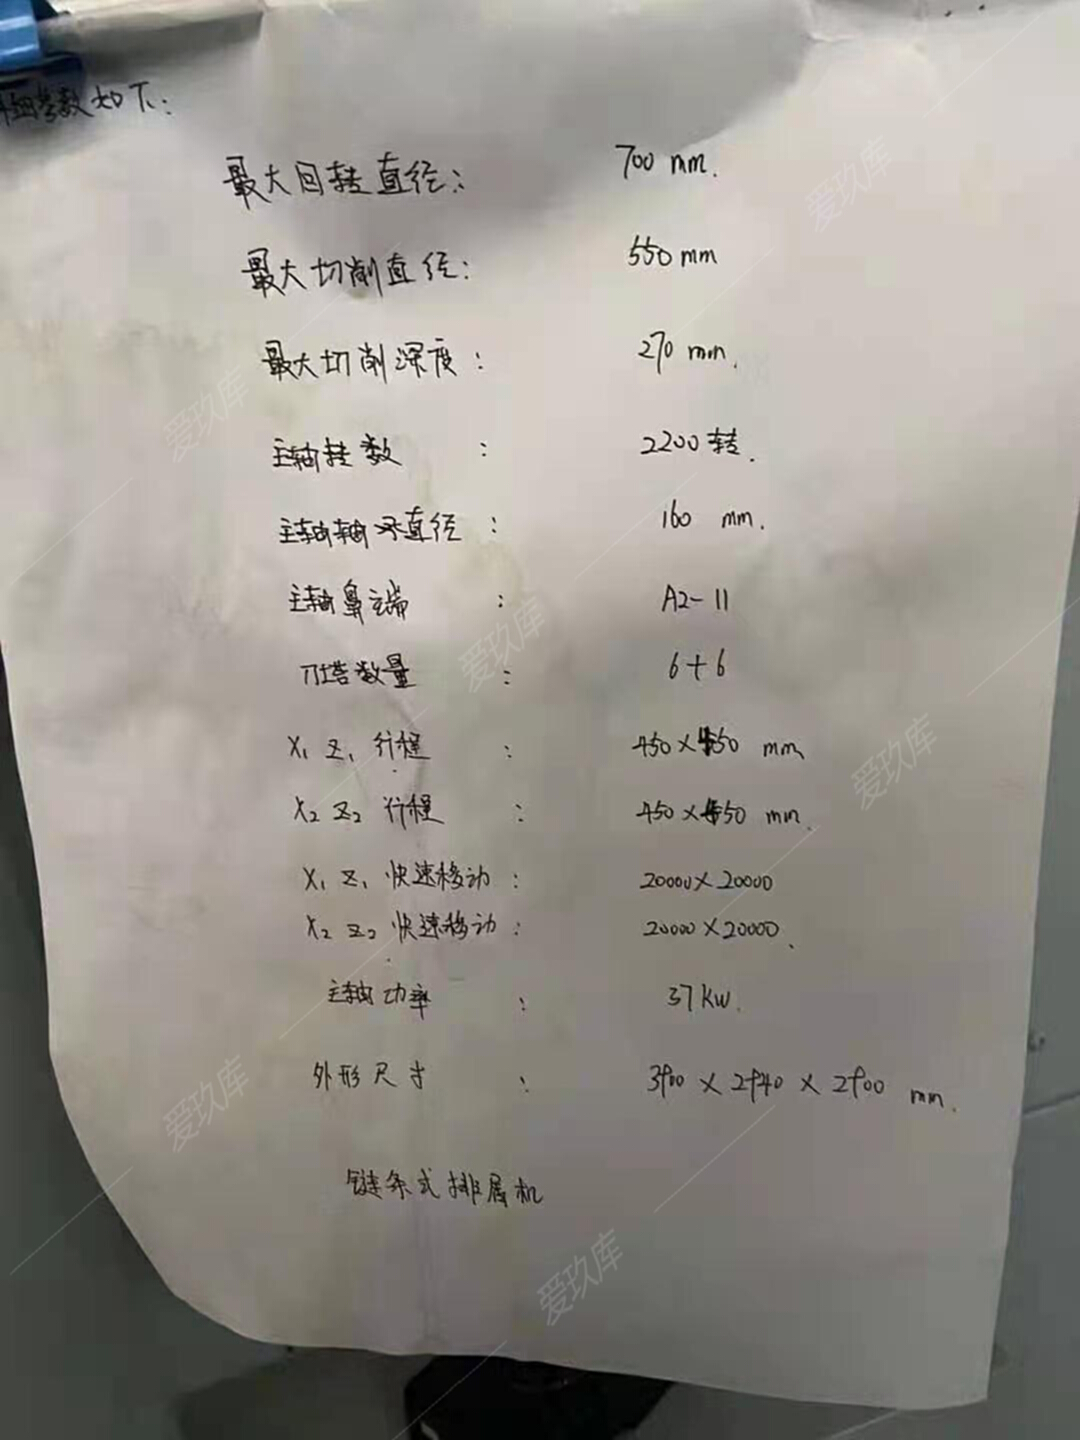 细参数如下:
最大回转直径: 700 mm.
最大切削直径: 550 mm
最大切削深度: 270 mm.
主轴转数 : 2200转.
主轴轴承直径 : 160 mm.
主轴鼻端 : A2-11
刀塔数量 : 6+6
X₁ Z₁ 行程 : 450×450 mm
X₂ Z₂ 行程 : 450×450 mm.
X₁ Z₁ 快速移动 : 20000×20000
X₂ Z₂ 快速移动 : 20000×20000.
主轴功率 : 37KW.
外形尺寸 : 3900 × 2940 × 2900 mm.
链条式排屑机
爱玖库
爱玖库
爱玖库
爱玖库
爱玖库
爱玖库